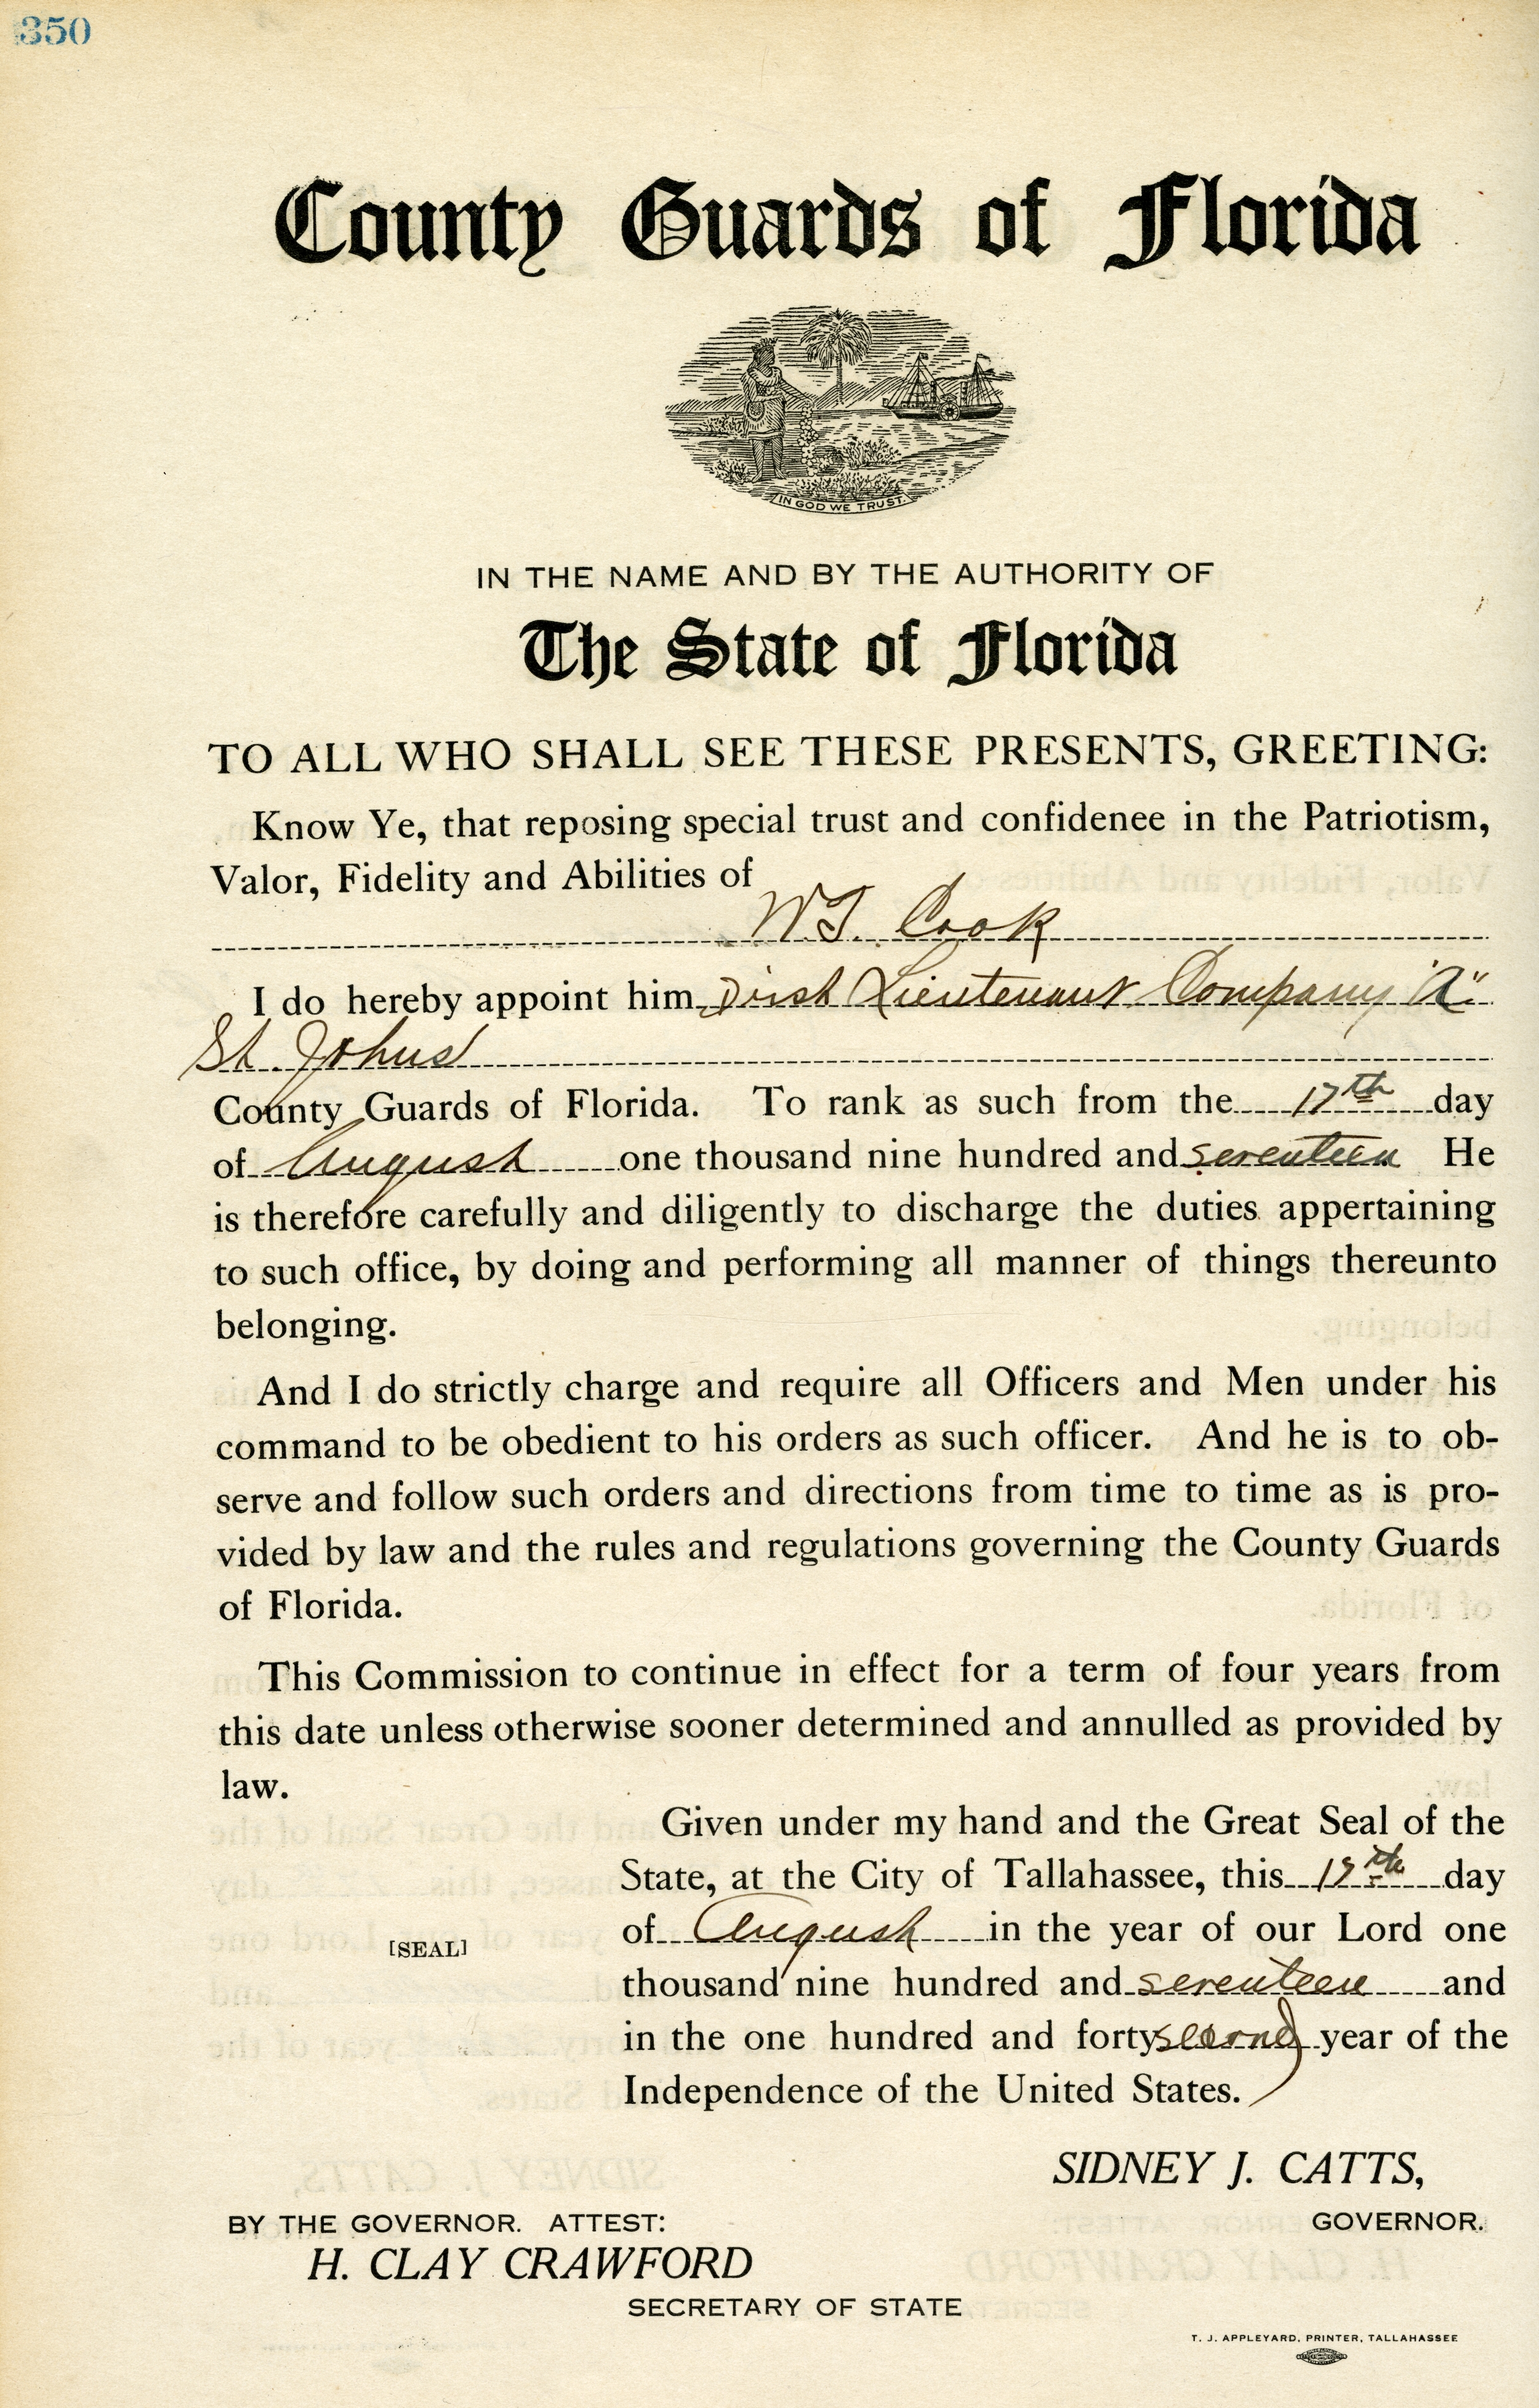 350
County Guards of Florida
IN GOD WE TRUST.
IN THE NAME AND BY THE AUTHORITY OF
The State of Florida
TO ALL WHO SHALL SEE THESE PRESENTS, GREETING:
Know Ye, that reposing special trust and confidenee in the Patriotism,
Valor, Fidelity and Abilities of
W.T. Cook
I do hereby appoint him First Lieutenant Company "A"
St. Johns
County Guards of Florida. To rank as such from the 17th day
of August one thousand nine hundred and seventeen He
is therefore carefully and diligently to discharge the duties appertaining
to such office, by doing and performing all manner of things thereunto
belonging.
And I do strictly charge and require all Officers and Men under his
command to be obedient to his orders as such officer. And he is to ob-
serve and follow such orders and directions from time to time as is pro-
vided by law and the rules and regulations governing the County Guards
of Florida.
This Commission to continue in effect for a term of four years from
this date unless otherwise sooner determined and annulled as provided by
law.
Given under my hand and the Great Seal of the
State, at the City of Tallahassee, this day
of August in the year of our Lord one
[SEAL]
thousand nine hundred and seventeen and
in the one hundred and forty second year of the
Independence of the United States.
SIDNEY J. CATTS,
GOVERNOR.
BY THE GOVERNOR. ATTEST:
H. CLAY CRAWFORD
SECRETARY OF STATE
T. J. APPLEYARD, PRINTER, TALLAHASSEE